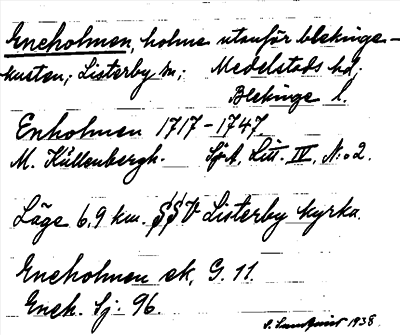 Eneholmen, holme utanför blekinge-
kusten; Listerby sn; Medelstads hd;
Blekinge l.
Enholmen 1717-1747
M. Küllenbergh. Sj.A, Litt. IV, N:o 2.
Läge 6,9 km. SSV Listerby kyrka.
Eneholmen ek, G. 11.
Ensk. Sj: 96.
1938